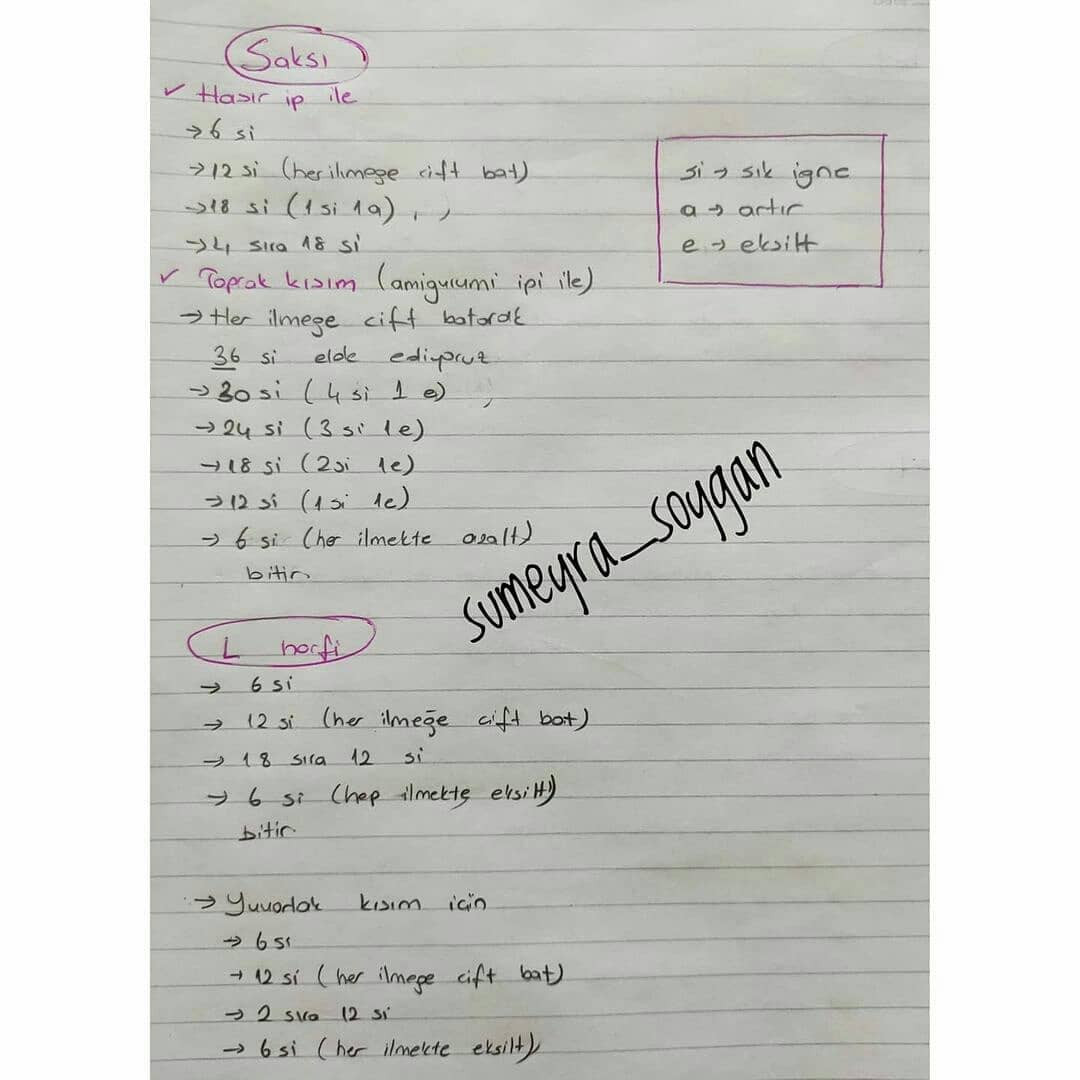 Saksı
✓ Hasır ip ile
→ 6 si
→ 12 si (her ilmeğe çift bat)
→ 18 si (1 si 1a)
→ 4 sıra 18 si
si → sık iğne
a → artır
e → eksilt
✓ Toprak kısım (amigurumi ipi ile)
→ Her ilmeğe çift batarak
36 si elde ediyoruz
→ 30 si (4 si 1 e)
→ 24 si (3 si 1e)
→ 18 si (2si 1e)
→ 12 si (1 si 1e)
→ 6 si (her ilmekte azalt)
bitir
sumeyra_soygan
L harfi
→ 6 si
→ 12 si (her ilmeğe çift bat)
→ 18 sıra 12 si
→ 6 si (hep ilmekte eksilt)
bitir
→ Yuvarlak kısım için
→ 6 si
→ 12 si (her ilmeğe çift bat)
→ 2 sıra 12 si
→ 6 si (her ilmekte eksilt)